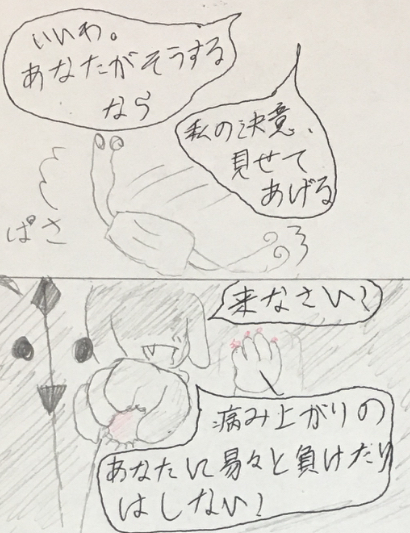 いいわ。
あなたがそうする
なら
私の決意、
見せて
あげる
ぱさ
来なさい!
病み上がりの
あなたに易々と負けたり
はしない!